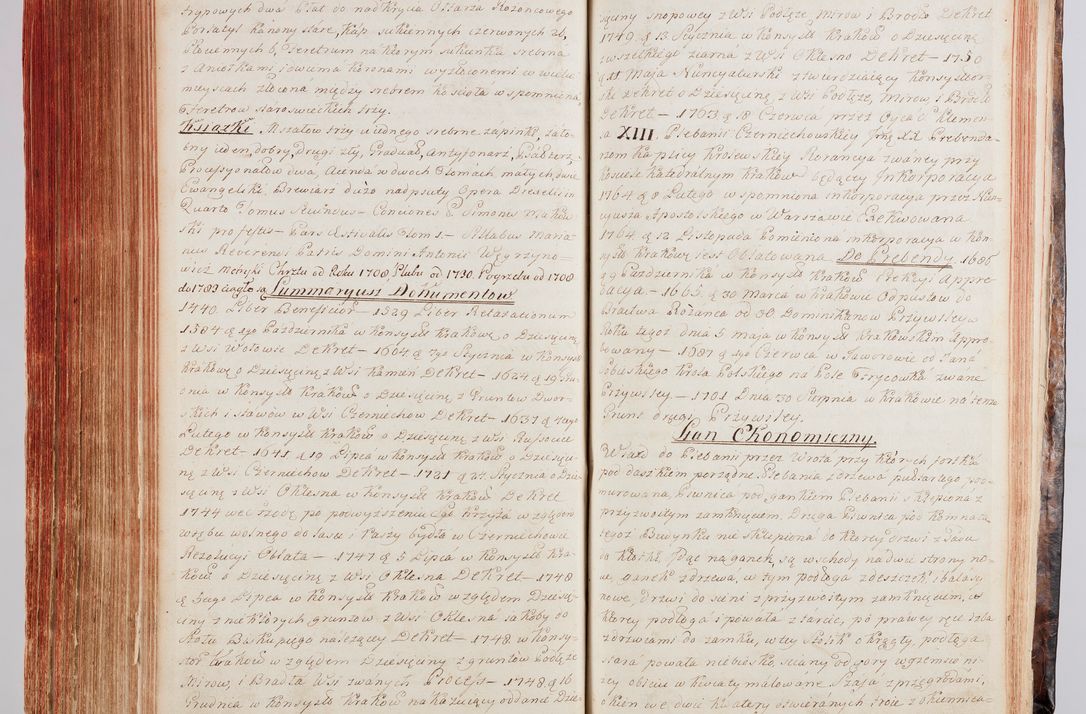 trypowych dwa Płat do nadkrycia Ołtarza Rożoncowego
Portatyl kanony stare, Kap sukiennych czerwonych zł,
Płóciennych 6, Feretrum na ktorym sukienka srebrna
z Aniołkami, i dwiema koronami wyzłoconemi w wielu
mieyscach złocona między srebrem kościoła wspomniona,
Feretrow staroswieckich trzy.
Książki. Mszałow trzy u iednego srebrne zapinki, żało-
bny ieden, dobry, drugi zły, Graduał, Antyfonarz, Psałterz
Processyonałow dwa, Agenda w dwoch Tomach małych, dwie
Ewangelki, Brewiarz dużo nadpsuty Opera Drexelii in
Quarto Tomus Secundus — Conciones P. Simonis
ski pro festis — Pars Æstivalis Tom 1. — Maria-
nus Reverendi Patris Domini Antonii Węgrzyno-
wicz Metryki Chrztu od Roku 1708 Slubu od 1730. Pogrzebu od 1708
do 1783 ciągłe są Summaryusz Dokumentow
1440. Liber Beneficior — 1529 Liber Retaxationum
1584 d 1go Pazdziernika w Konsystł Krakowł o Dziesięcinę
z Wsi Wołowie Dekret — 1604 d 7go Stycznia w Konsystł
Krakowł o Dziesięcinę z Wsi Kamień Dekret — 1624 d 19 Gru-
dnia w Konsystł Krakowł o Dziesięcinę z Gruntow Dwor-
skich i Stawow w Wsi Czernichow Dekret — 1637 d 4go
Lutego w Konsystł Krakowł o Dziesięcinę z Wsi Rusocice
Dekret — 1641 d 19 Lipca w Konsystł Krakowł o Dziesięci-
nę z Wsi Czernichow Dekret — 1721 d 27 Stycznia o Dzie-
sięcinę z Wsi Okleśna w Konsystł Krakowł Dekret
1744 we Srzodę po podwyższeniu Sgo Krzyża względem
wrębu wolnego do Lasu i Paszy bydła w Czernichowie
Rezolucyi Oblata — 1747 d 5 Lipca w Konsystł Kra-
kowł o Dziesięcinę z Wsi Okleśna Dekret — 1748
d 5go Lipca w Konsystł Krakowł względem Dziesię-
ciny z niektorych gruntow z Wsi Okleśna jakoby do
Stołu Biskupiego należącey Dekret — 1748 w Konsy-
stoł Krakow względem Dziesięciny z gruntow Podłęże
Mirow, i Brodła Wsi zwanych Process — 1748 d 16
Grudnia w Konsystł Krakowł nakazuiący oddanie Dzie-
sięciny snopowey z Wsi Podłęże, Mirow i Brodło Dekret
1749 d 13 Stycznia w Konsystł Krakow o Dziesięcinę
wszelkiego ziarna z Wsi Okleśno Dekret — 1750
d 21 Maja Nuncyaturski ztwierdzaiący Konsystor-
ski Dekret o Dziesięcinę z Wsi Podłęże, Mirow, i Brodło
Dekret — 1763 d 8 Czerwca przez Oyca S. Klemen-
sa XIII. Plebanii Czernichowskiey Jmę XX Prebenda-
rzom kaplicy Krolewskiey Rorancya zwaney przy
Kosciele Katedralnym Krakow będącey Inkorporacya
1764 d 8 Lutego wspomniona inkorporacya przez Nun-
cyusza Apostolskiego w Warszawie Exekwowana
1764 d 12 Listopada Pomieniona inkorporacya w Kon-
systł Krakowł iest Oblatowana Do Prebendy. 1686
d 9 Pazdziernika w Konsystł Krakow Erekcyi Appro-
bacya. — 1663 d 30 Marca w Krakowie Odpustow do
Bractwa Rożanca od XX Dominikanow Przywiley
Roku tegoż Dnia 5 Maja w Konsystł Krakowskim Appro-
bowany — 1687 d 1go Czerwca w Jaworowie od Jana
Sobieskiego Krola Polskiego na Pole Frycowka zwane
Przywiley — 1701 Dnia 30 Sierpnia w Krakowie na tenże
Grunt drugi Przywiley.
Stan Ekonomiczny.
Wiazd do Plebanii przez Wrota przy ktorych fortka
pod daszkiem porządne, Plebania z drzewa pobiarłego pod-
murowana, Piwnica pod gankiem Plebanii sklepiona z
przyzwoitym zamknięciem. Druga Piwnica pod komnatą
tegoż Budynku nie sklepiona do ktorey drzwi z Sadu
do kłotki, Idąc na ganek są wschody na dwie strony no-
we, ganek z drzewa, w tym podłoga z deszczek i balasy
nowe, Drzwi do sieni z przyzwoitym zamknięciem, w
ktorey podłoga i powała z tarcic, po prawey ręce izba
z drzwiami do zamku, w tey stolik okrągły, podłoga
stara powała niebiesko, sciany od gory w
zey obiciu w kwiaty malowane. Szafa z przegrodami,
okien we dwie kwatery otwieranych troie z okiennica-